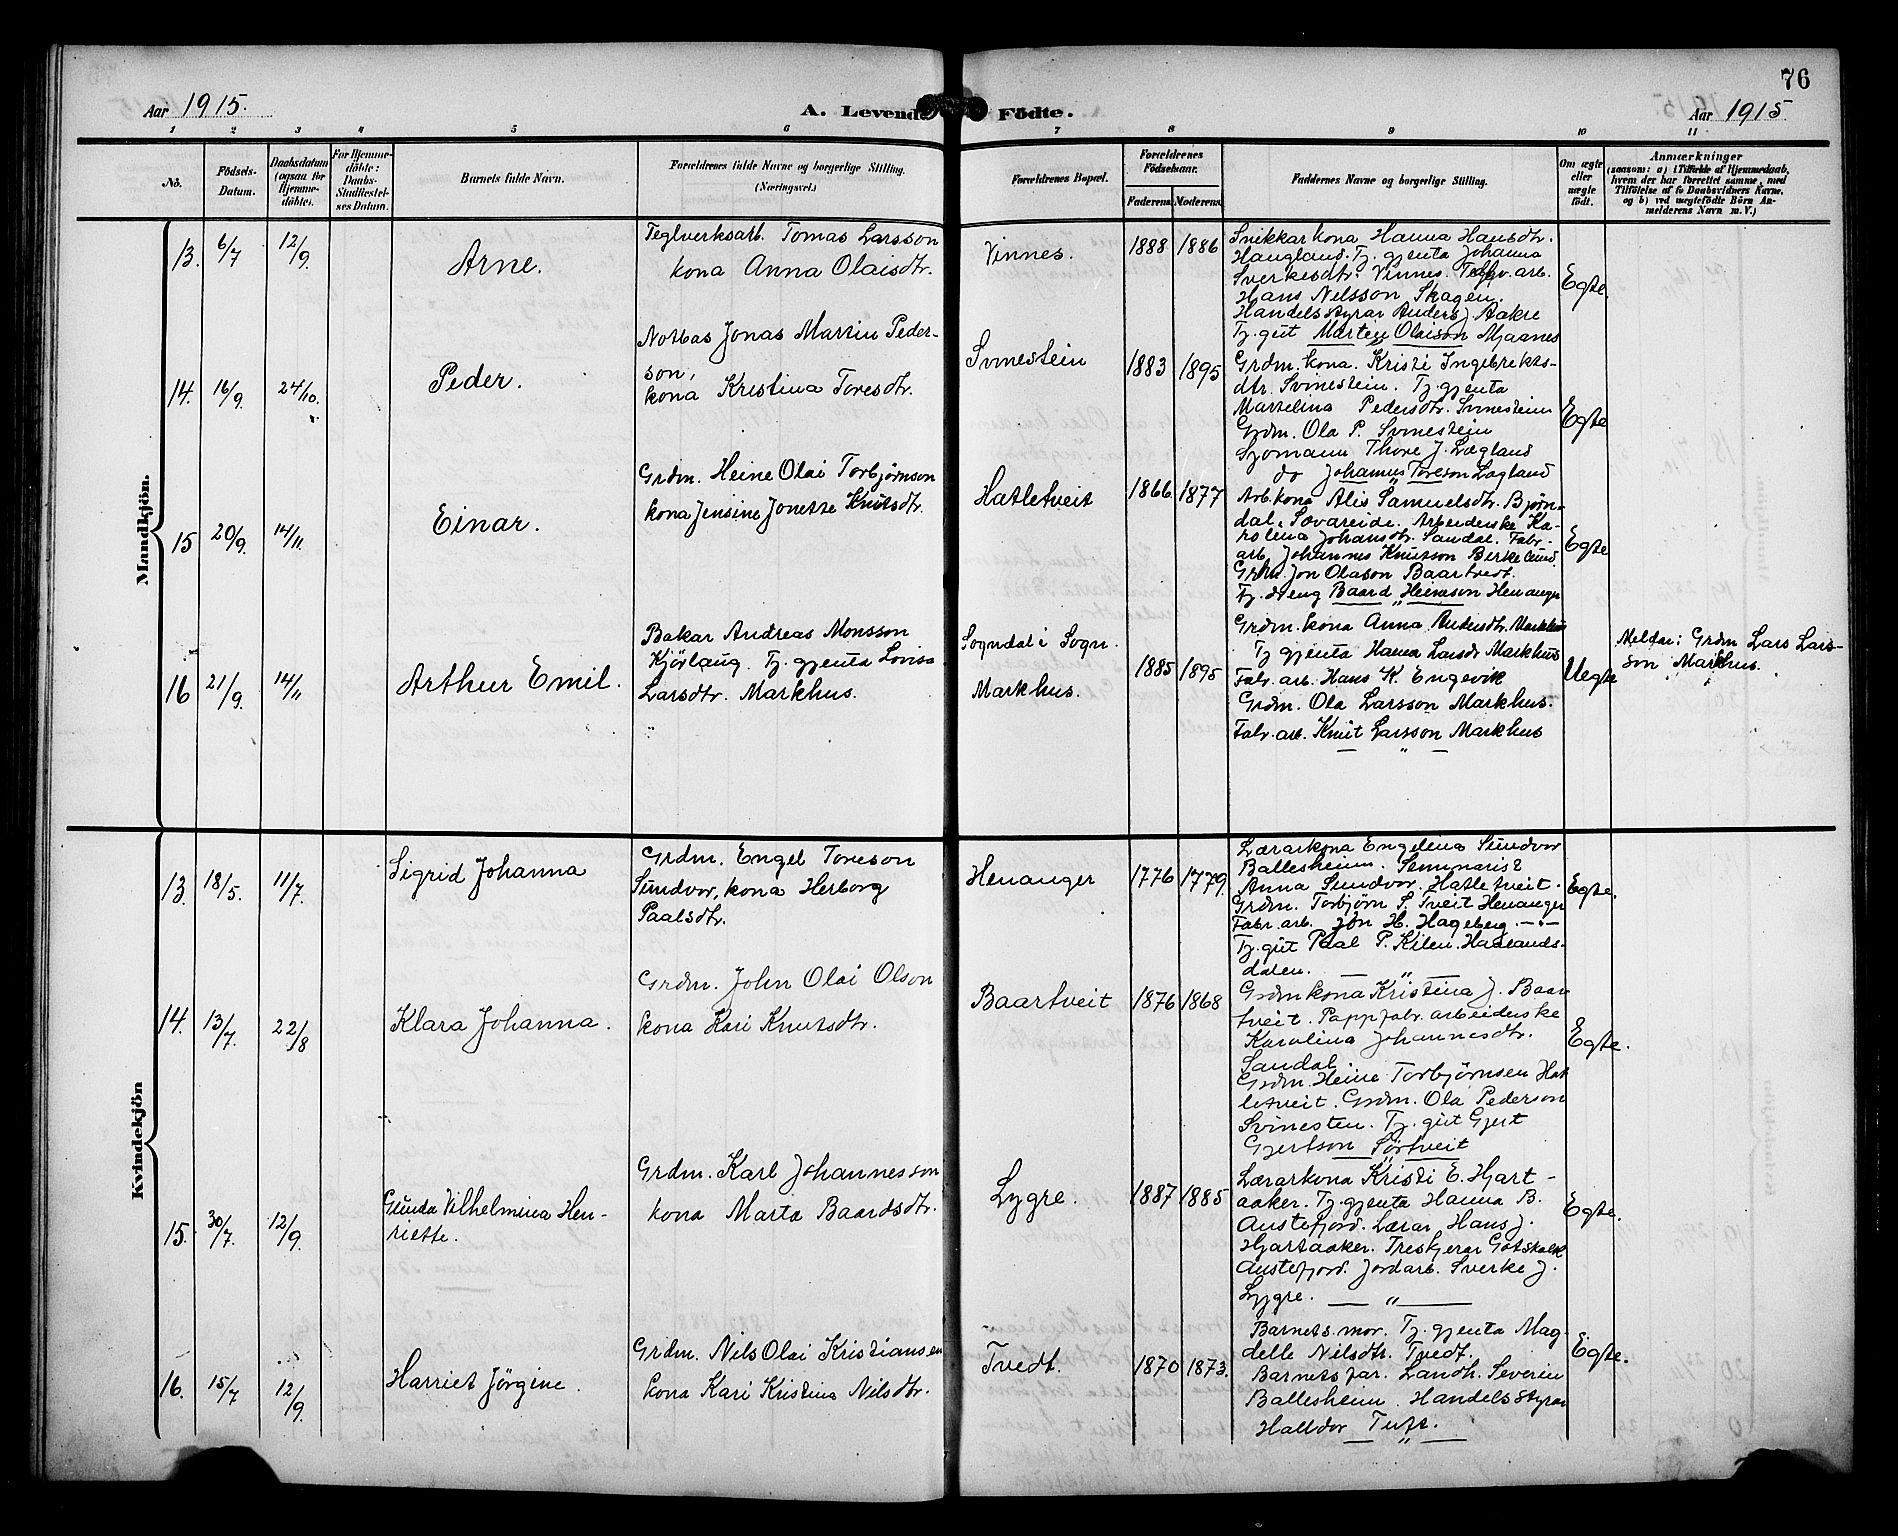 76
Aar 1915.
A. Levende Födte.
Aar 1915
1 2 3 4 5 6 7 8 9 10 11
No.
Födsels-
Datum.
Daabsdatum
(ogsaa for
Hjemme-
döbte).
For Hjemme-
döbte:
Daabs-
Stadfæstel-
ses Datum.
Barnets fulde Navn.
Forældrenes fulde Navne og borgerlige Stilling.
(Næringsvei.)
Forældrenes Bopæl.
Forældrenes
Födselsaar.
Faderens Moderens
Faddernes Navne og borgerlige Stilling.
Om ægte
eller
uægte
födt.
Anmærkninger
(saasom: a) i Tilfælde af Hjemmedaab,
hvem der har forrettet samme, med
Tilföielse af to Daabsvidners Navne,
og b) ved uægtefödte Börn An-
melderens Navn m. V.)
Mandkjön.
13. 6/7 12/9.
Arne.
Teglverksarb. Tomas Larsson
kona Anna Olaisdtr.
Vinnes.
1888 1886
Snikkarkona Hanna Hansdtr.
Haugland. Tj. gjenta Johanna
Sverkesdtr. Vinnes. Teglv. arb.
Hans Nilsson Skagen.
Handelsstyrar Anders J. Aakre
Tj. gut Marten Olaison Mjaanes
Egte.
14. 16/9. 24/10.
Peder.
Notbas Jonas Martin Peder-
son,
kona Kristina Toresdtr.
Svinestein
1883 1895
Grdm. kona. Kristi Ingebrekts-
dtr. Svinestein. Tj. gjenta
Marselina Pedersdtr. Svinestein
Grdm. Ola P. Svinestein
Sjömann Thore J. Lægland
do Johannes Toreson Lægland
Egte
15 20/9. 14/11.
Einar.
Grdm. Heine Olai Torbjørnson
kona Jensine Jonette Knutsdtr.
Hatletveit
1866 1877
Arb. kona Alis Samuelsdtr. Bjørn-
dal, Sævareide. Arbeiderske Ka-
rolena Johansdtr. Sandal. Fabr.-
arb. Johannes Knutson Berkelund.
Grdm. Jon Olason Baartvedt.
Tj. dreng Baard Heineson Henanger
Egte
16 21/9. 14/11
Arthur Emil.
Bakar Andreas Monsson
Kjörlaug. Tj. gjenta Lovisa
Larsdtr. Markhus.
Sogndal i Sogn.
Markhus.
1885 1895
Grdm. kona Anna Andersdtr. Markhus
Tj gjenta Hanna Larsdr Markhus
Fabr. arb. Hans K. Engevik
Grdm. Ola Larsson Markhus.
Fabr. arb. Knut Larsson Markhus
Uegte
Meldar: Grdm Lars Lars-
son Markhus.
Kvindekjön
13. 18/5. 11/7.
Sigrid Johanna
Grdm. Engel Toreson
Sundvor, kona Herborg
Paalsdtr.
Henanger
1776 1779.
Lærarkona Engelina Sundvor
Ballesheim. Seminarist
Anna Sundvor. Hatletveit.
Grdm. Torbjørn S. Tveit Henanger
Fabr. arb. Jon H. Hageberg. — " —
Tj. gut Paal P. Kilen. Haalands-
dalen.
Egte.
14. 13/7. 22/8
Klara Johanna.
Grdm. John Olai Olson
kona Kari Knutsdtr.
Baartveit
1876 1868
Grdmkona Kristina J. Baar
tveit. Pappfabr. arbeiderske
Karolina Johannesdtr.
Sandal.
Grdm. Heine Torbjørnsen Hat
letveit. Grdm. Ola Pederson
Svinesten. Tj. gut Gjert
Gjertson Sörtveit
Egte.
15. 30/7. 12/9.
Gunda Vilhelmina Hen-
riette.
Grdm. Karl Johannesson
kona Marta Baardsdtr.
Lygre.
1887 1885
Lærarkona Kristi E. Hjart-
aaker. Tj. gjenta Hanna B.
Austefjord. Lærar Hans J.
Hjartaaker. Treskjerar Gotskalk
Austefjord. Jordarb. Sverke J.
Lygre. — " —
Egte.
16. 15/7 12/9.
Harriet Jörgine.
Grdm. Nils Olai Kristiansen
kona Kari Kristina Nilsdtr.
Tvedt.
1870 1873.
Barnets mor. Tj. gjenta Mag-
delle Nilsdtr. Tvedt.
Barnets far. Landh. Severin
Ballesheim. Handelsstyrar
Halldor Tuft.
Egte.